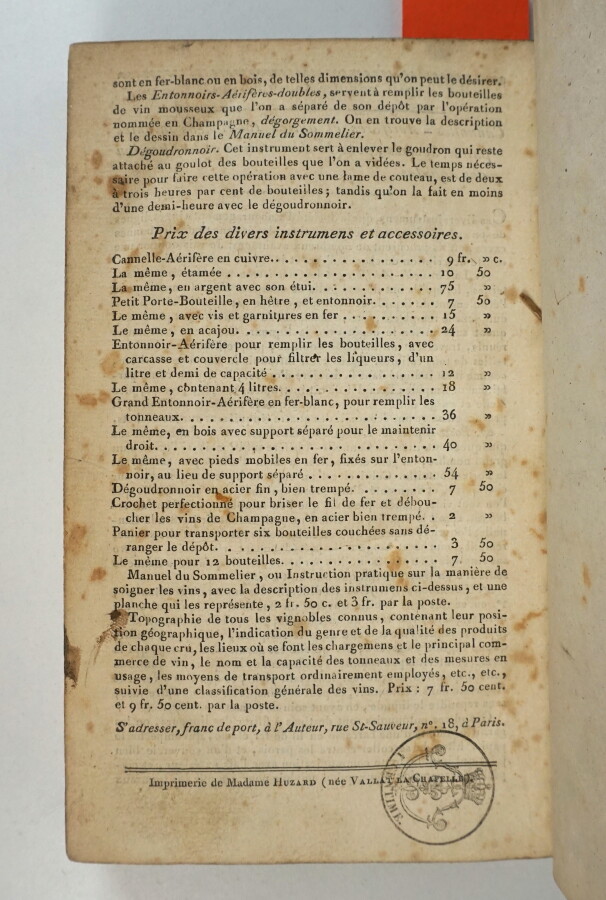 sont en fer-blanc ou en bois, de telles dimensions qu'on peut le désirer.
Les Entonnoirs-Aérifères-doubles, servent à remplir les bouteilles
de vin mousseux que l'on a séparé de son dépôt par l'opération
nommée en Champagne, dégorgement. On en trouve la description
et le dessin dans le Manuel du Sommelier.
Dégoudronnoir. Cet instrument sert à enlever le goudron qui reste
attaché au goulot des bouteilles que l'on a vidées. Le temps néces-
saire pour faire cette opération avec une lame de couteau, est de deux
à trois heures par cent de bouteilles; tandis qu'on la fait en moins
d'une demi-heure avec le dégoudronnoir.
Prix des divers instrumens et accessoires.
Cannelle-Aérifère en cuivre.. . . . . . . . . . . . . . . . 9 fr. » c.
La même, étamée . . . . . . . . . . . . . . . . . . . 10 50
La même, en argent avec son étui. . . . . . . . . . . . 75 »
Petit Porte-Bouteille, en hêtre, et entonnoir. . . . . . . 7 50
Le même, avec vis et garnitures en fer . . . . . . . . . 15 »
Le même, en acajou. . . . . . . . . . . . . . . . . . 24 »
Entonnoir-Aérifère pour remplir les bouteilles, avec
carcasse et couvercle pour filtrer les liqueurs, d'un
litre et demi de capacité . . . . . . . . . . . . . . . 12 »
Le même, contenant 4 litres. . . . . . . . . . . . . . . 18 »
Grand Entonnoir-Aérifère en fer-blanc, pour remplir les
tonneaux. . . . . . . . . . . . . . . . . . . . . . . 36 »
Le même, en bois avec support séparé pour le maintenir
droit. . . . . . . . . . . . . . . . . . . . . . . . . 40 »
Le même, avec pieds mobiles en fer, fixés sur l'enton-
noir, au lieu de support séparé . . . . . . . . . . . . 54 »
Dégoudronnoir en acier fin, bien trempé. . . . . . . . . 7 50
Crochet perfectionné pour briser le fil de fer et débou-
cher les vins de Champagne, en acier bien trempé. . 2 »
Panier pour transporter six bouteilles couchées sans dé-
ranger le dépôt. . . . . . . . . . . . . . . . . . . . 3 50
Le même pour 12 bouteilles. . . . . . . . . . . . . . . 7 50
Manuel du Sommelier, ou Instruction pratique sur la manière de
soigner les vins, avec la description des instrumens ci-dessus, et une
planche qui les représente, 2 fr. 50 c. et 3 fr. par la poste.
Topographie de tous les vignobles connus, contenant leur posi-
tion géographique, l'indication du genre et de la qualité des produits
de chaque cru, les lieux où se font les chargemens et le principal com-
merce de vin, le nom et la capacité des tonneaux et des mesures en
usage, les moyens de transport ordinairement employés, etc., etc.,
suivie d'une classification générale des vins. Prix : 7 fr. 50 cent.
et 9 fr. 50 cent. par la poste.
S'adresser, franc de port, à l'Auteur, rue St-Sauveur, n°. 18, à Paris.
Imprimerie de Madame HUZARD (née VALLAT LA CHAPELLE).